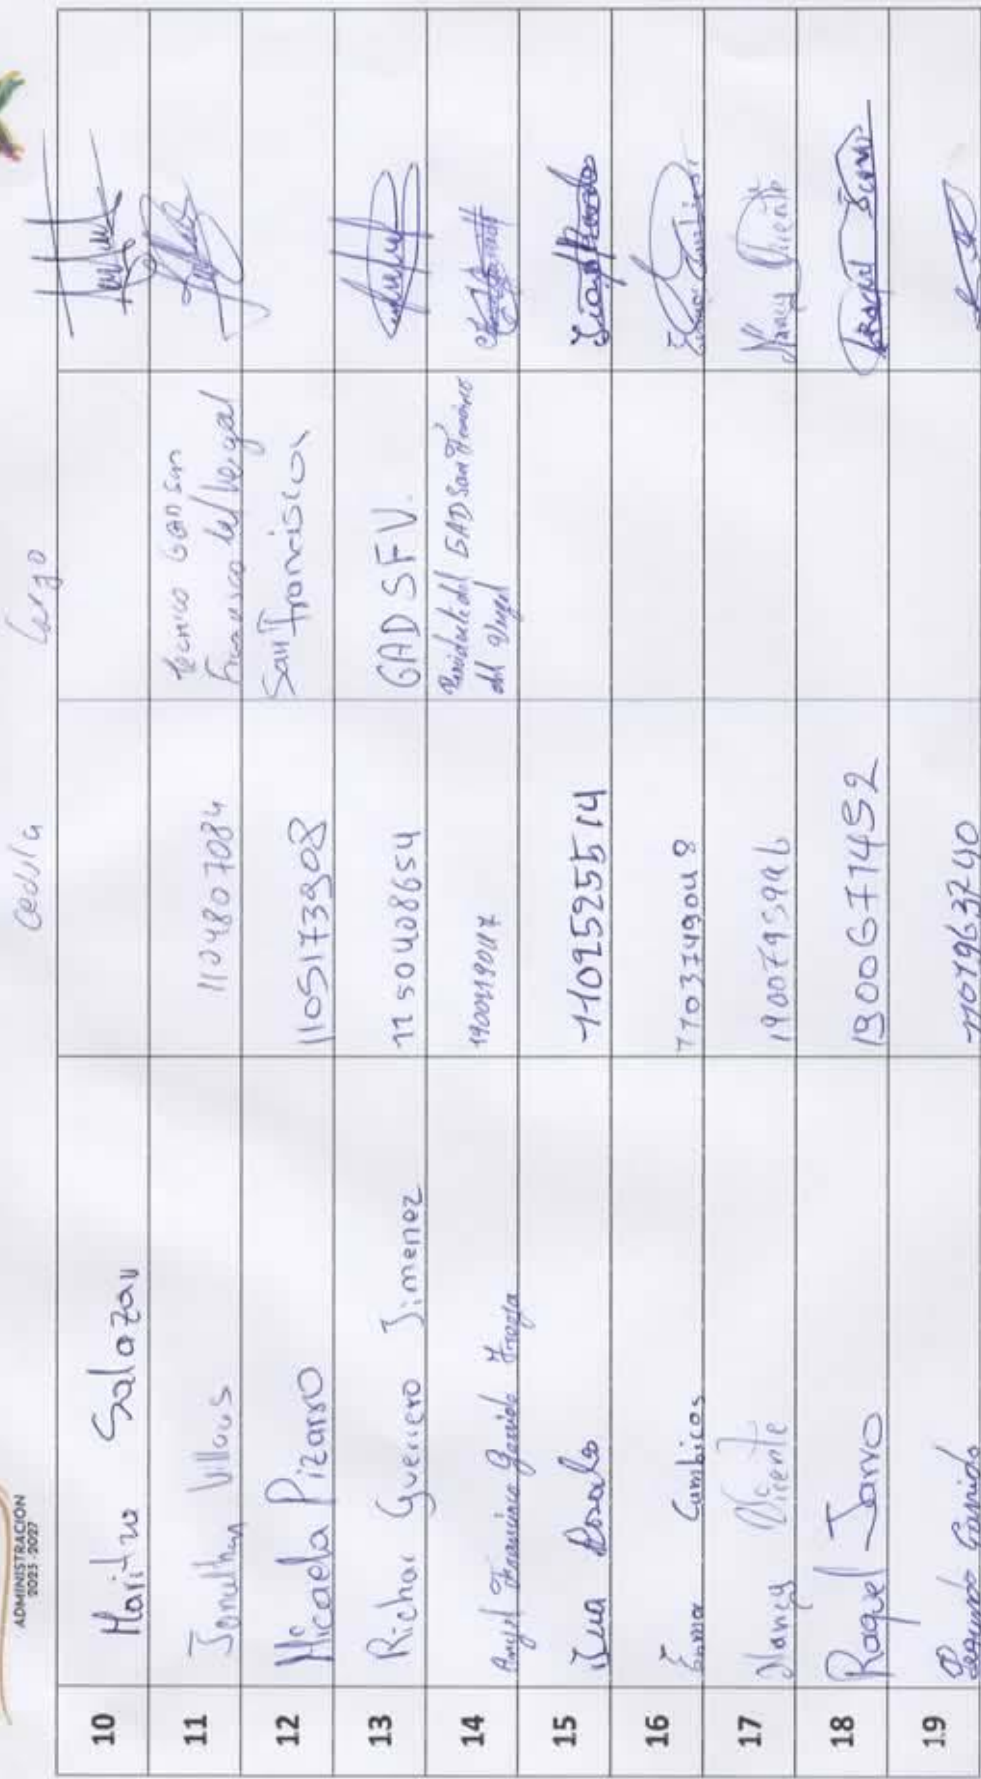 ADMINISTRACION
2023-2027
Cedula
Cargo
10 Maritza Salazar
11 Jonathan Villaus 1104807084 Tecnico GAD San
Francisco del Vergel
12 Micaela Pizarro 1105173908 San Francisco
13 Richar Guerrero Jimenez 1150408654 GADSFV.
14 Angel Francisco Garrido Presidente del GAD San Francisco
del Vergel
15 Rosales 1102525514
16 Emma Cumbicos 1103749048 Emma Cumbicos
17 Nancy Vicente 1900795946 Nancy Vicente
18 Raquel Jarro 1900671452 Raquel
19 Segundo Garrido 1101963740